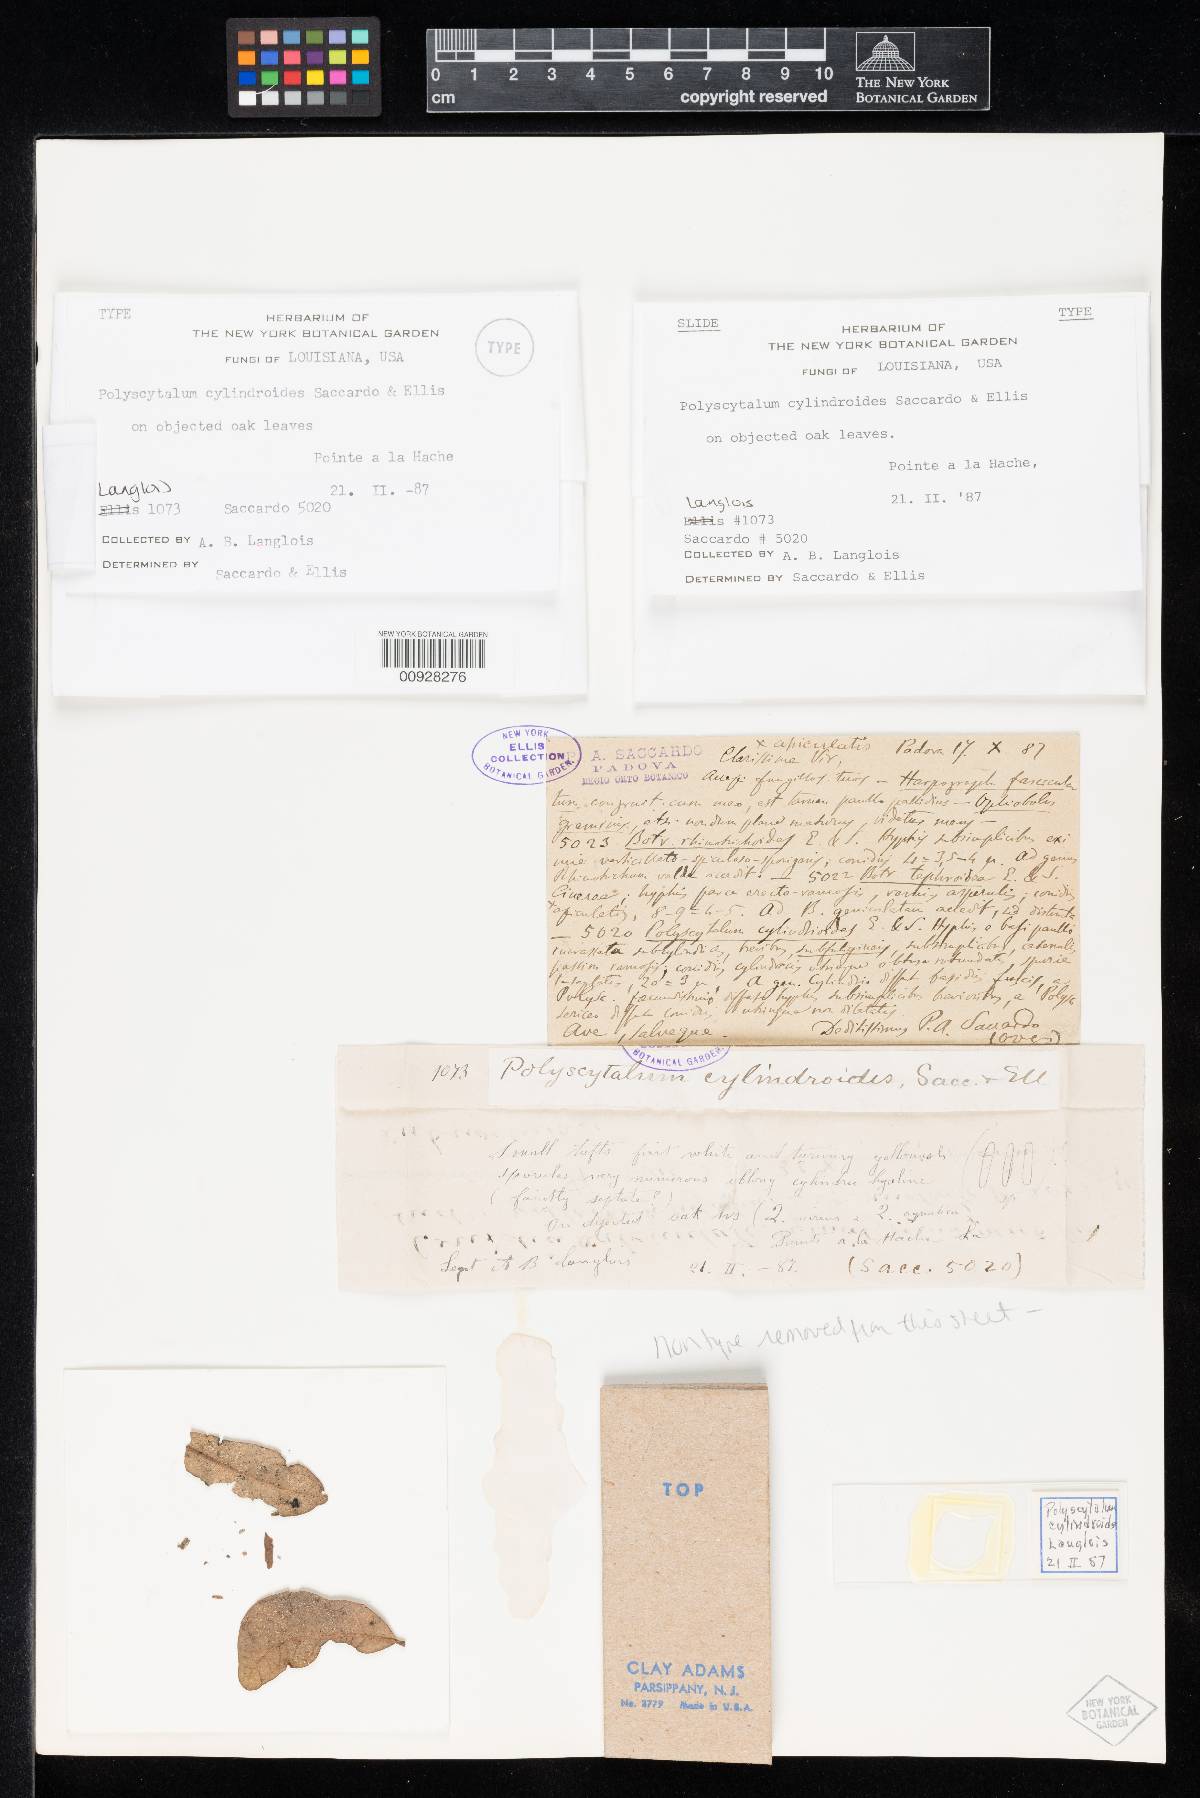 0 1 2 3 4 5 6 7 8 9 10
cm
copyright reserved
THE NEW YORK
BOTANICAL GARDEN
TYPE
HERBARIUM OF
THE NEW YORK BOTANICAL GARDEN
FUNGI OF LOUISIANA, USA
TYPE
Polyscytalum cylindroides Saccardo & Ellis
on objected oak leaves
Pointe a la Hache
Langlois
21. II. -87
Ellis 1073 Saccardo 5020
COLLECTED BY A. B. Langlois
DETERMINED BY Saccardo & Ellis
NEW YORK BOTANICAL GARDEN
00928276
SLIDE
TYPE
HERBARIUM OF
THE NEW YORK BOTANICAL GARDEN
FUNGI OF LOUISIANA, USA
Polyscytalum cylindroides Saccardo & Ellis
on objected oak leaves.
Pointe a la Hache,
Langlois
21. II. '87
Ellis #1073
Saccardo # 5020
COLLECTED BY A. B. Langlois
DETERMINED BY Saccardo & Ellis
NEW YORK
ELLIS
COLLECTION
BOTANICAL GARDEN.
A. SACCARDO
PADOVA
REGIO ORTO BOTANICO
x apiculatis Padova 17. X 87
Clarissime Vir,
fungillos tuos —
congruit cum meo, est tamen paullo pallidius — Ophiobolus
5023 Botr. rhinotrichoides E. & S. Hyphis subsimplicibus exi
conidiis 4 = 3,5-4 μ. Ad genus
valde accedit. — 5022 Botr. tephroidea E. & S.
hyphis parce erecto-ramosis, conidiis
apiculatis, 8-9 = 4-5. Ad B. geniculatam accedit, sed distincta
— 5020 Polyscytalum cylindrioides E. & S. Hyphis e basi paullo
passim ramosis; conidiis cylindraceis utrinque obtuse rotundatis,
1-septatis, 20 = 3 μ. A gen. Cylindrio
hyphis subsimplicibus brevioribus, a Polysc
sericeo conidiis utrinque non dilatatis.
Ave, salveque. Deditissimus P.A. Saccardo
(over)
BOTANICAL GARDEN.
1073 Polyscytalum cylindroides, Sacc. & Ell
Small tufts first white and turning yellowish
Sporules very numerous oblong cylindric hyaline
(faintly septate?)
On dejected oak lvs (Q. virens & Q. aquatica)
Pointe a la Hache La
Legit A B Langlois 21. II. -87. (Sacc. 5020)
Nontype removed from this sheet —
TOP
CLAY ADAMS
PARSIPPANY, N. J.
No. 3779 Made in U.S.A.
Polyscytalum
cylindroides
Langlois
21 II 87
NEW YORK
BOTANICAL
GARDEN